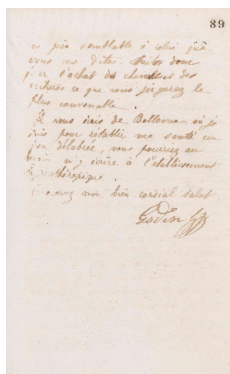 89
un prix semblable à celui que
vous me dites. Faites donc
pour l'achat des chevaux et des
voitures ce que vous jugerez le
plus convenable.
Je vous écris de où je
suis pour rétablir ma santé un
peu délabrée, vous pourriez au
besoin m'y écrire à l'établissement
hydrothérapique.
Recevez mon bien cordial salut
Godin